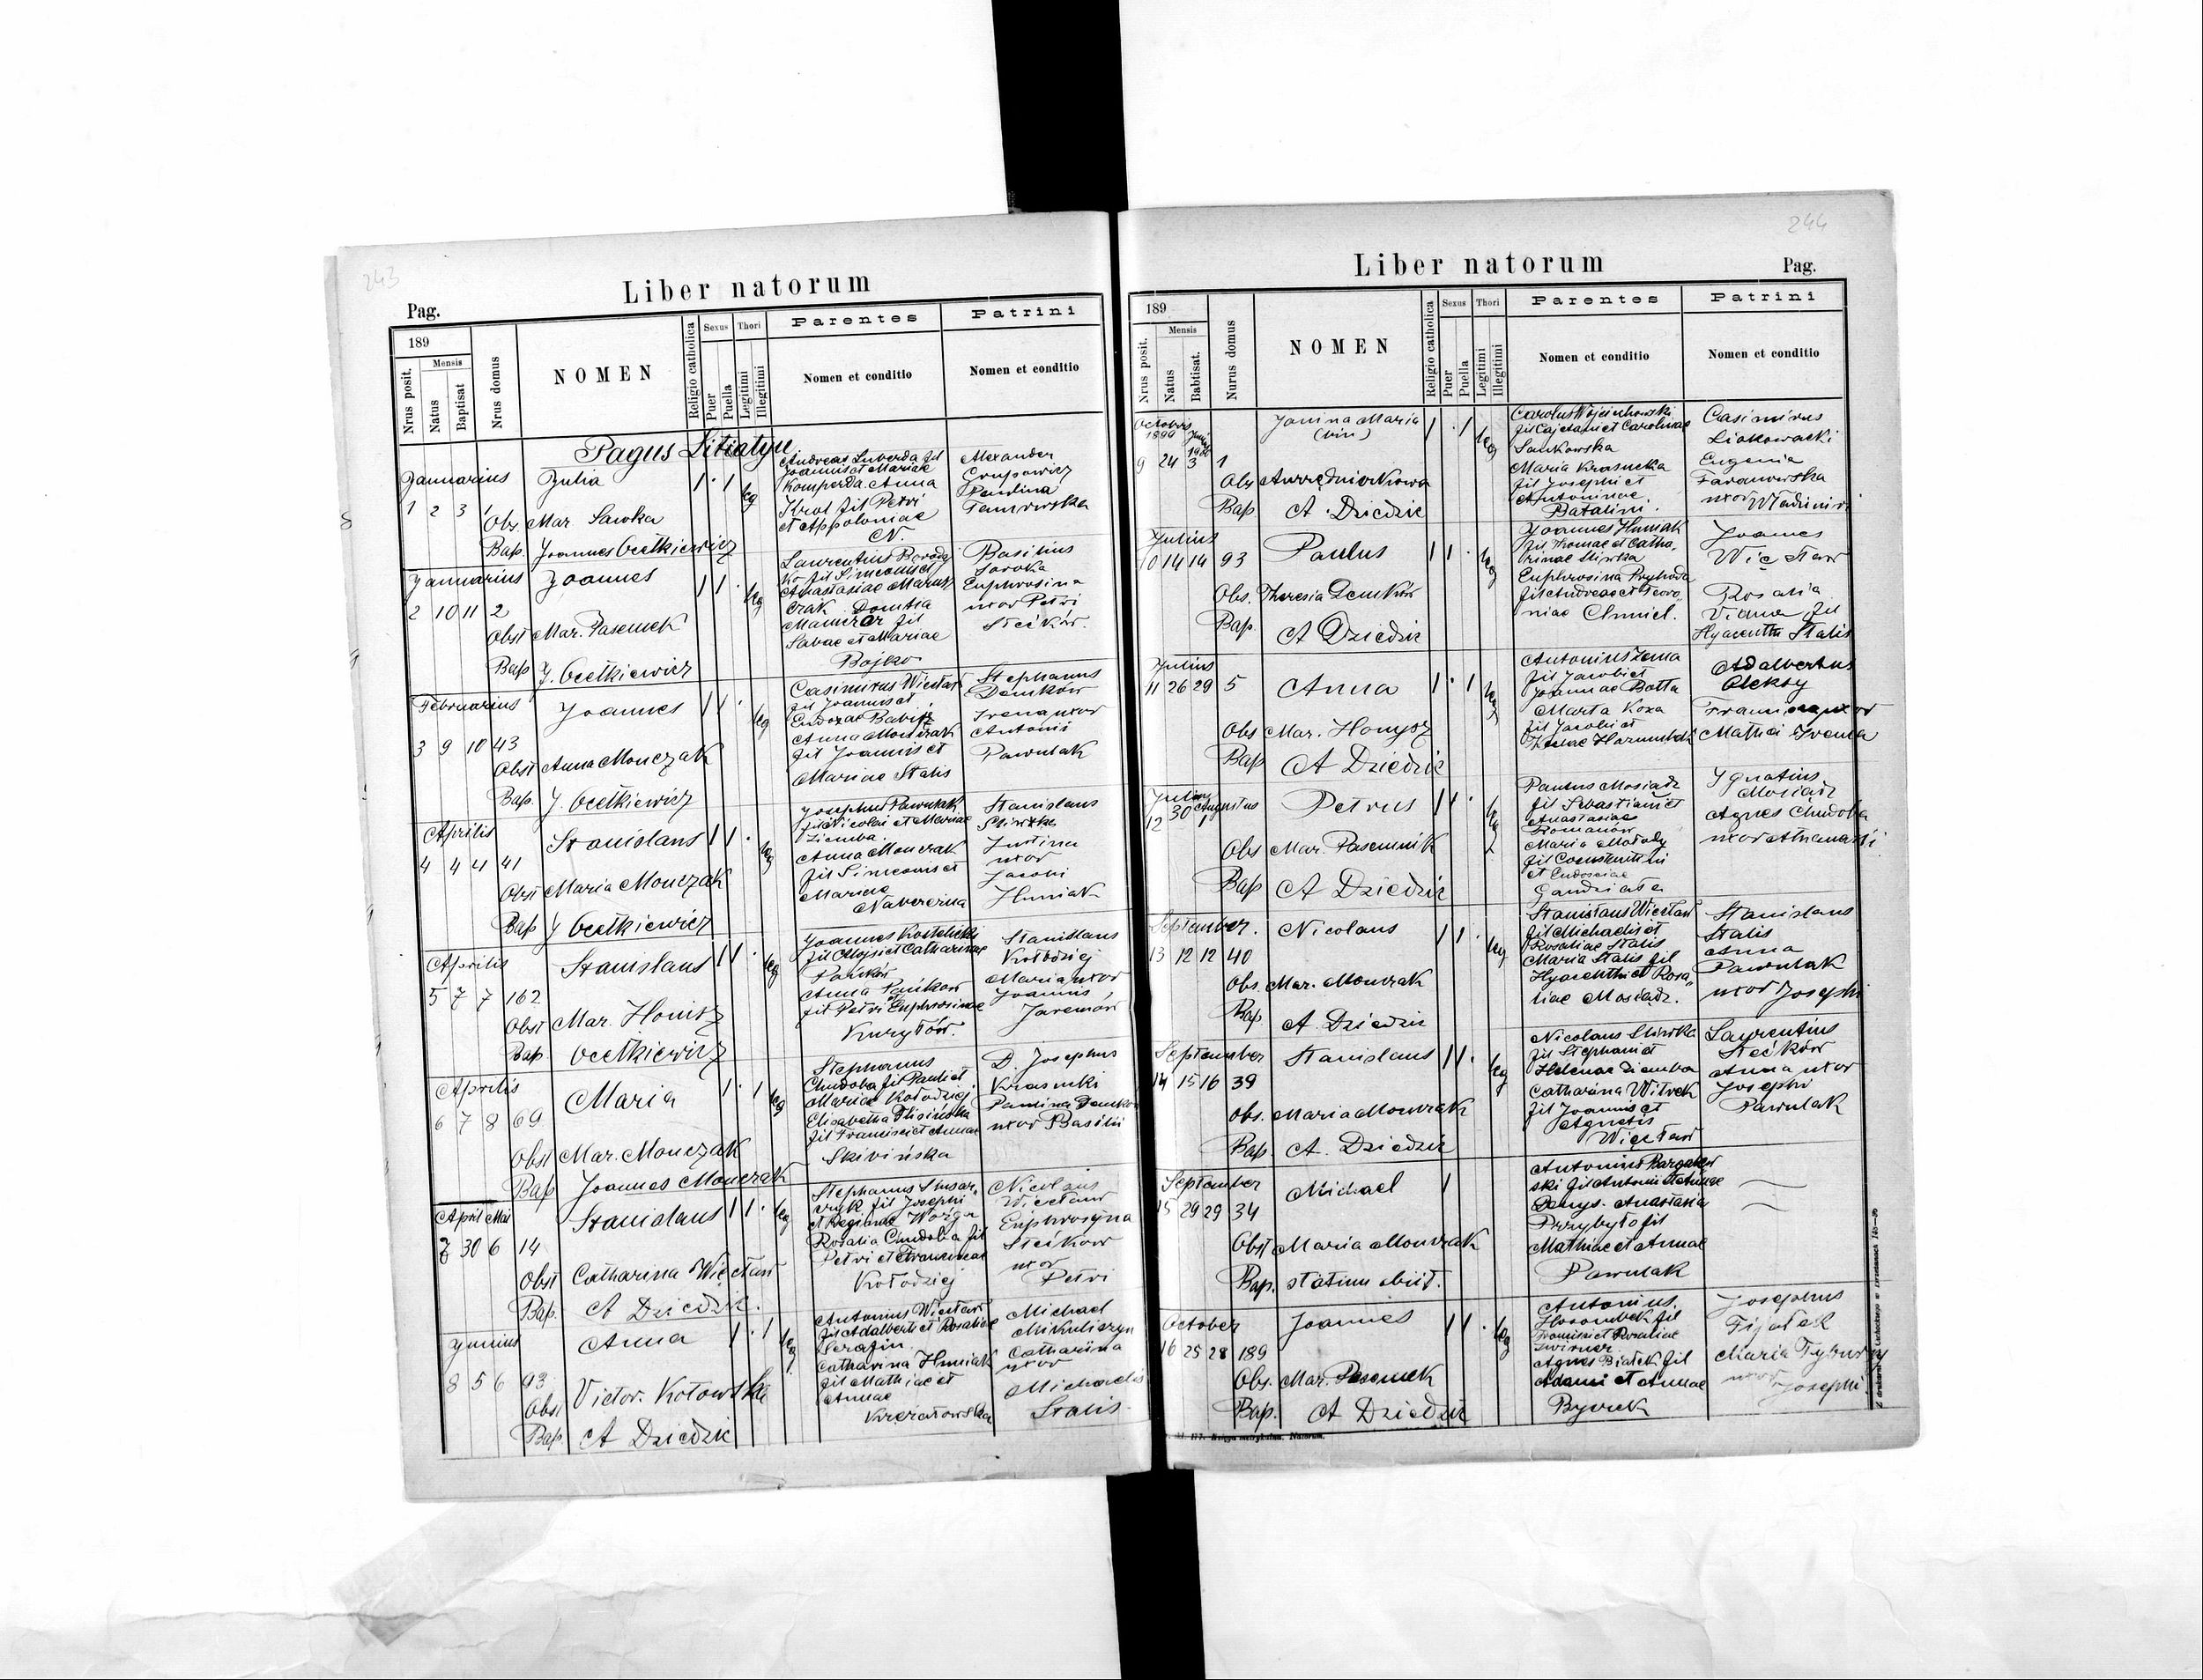 243
Liber natorum
Pag.
189
Mensis
Nrus posit.
Natus
Baptisat
Nrus domus
NOMEN
Religio catholica
Sexus
Puer
Puella
Thori
Legitimi
Illegitimi
Parentes
Nomen et conditio
Patrini
Nomen et conditio
Pagus Litiatyn
Januarius
1 2 3 1
Julia
1 · 1 leg
Obs Mar Sawka
Bap. Joannes
Andreas Luberda fil
Joannis et Mariae
Komperda. Anna
Król fil Petri
et Appoloniae
N.
Alexander
Paulina
Januarius
2 10 11 2
Joannes
1 1 · leg
Obst Mar. Pasemek
Bap J.
Laurentius
ko fil Simeonis et
Anastasiae
Domka
fil
Sabae et Mariae
Bojko
Basilius
Soroka
Euphrosina
uxor Petri
Stećków
Februarius
3 9 10 43
Joannes
1 1 · leg
Obst Anna Monczak
Bap. J.
Casimirus Więcław
fil Joannis et
Anna Monczak
fil Joannis et
Mariae Stalis
Stephanus
Demków
Irena uxor
Antonii
Pawulak
Aprilis
4 4 4 41
Stanislaus
1 1 · leg
Obst Maria Monczak
Bap J
Josephus Pawulak
fil Nicolai et Mariae
Ziemba.
Anna Monczak
fil Simeonis et
Mariae
Stanislaus
Śliwka
Justina
uxor
Jacobi
Humiak
Aprilis
5 7 7 162
Stanislaus
1 1 · leg
Obst Mar. Honisz
Bap.
Joannes
fil Alojsi et Catharinae
Pańków
Anna
fil Petri Euphrosinae
Kuryłów.
Stanislaus
Kołodziej
Maria uxor
Joannis
Jaremów
Aprilis
6 7 8 69
Maria
1 · 1 leg
Obst Mar. Monczak
Bap Joannes Monczak
Stephanus
Chudoba fil Pauli et
Mariae Kołodziej
Elisabetha
fil Francisci et Annae
Skiwińska
D. Josephus
Krasucki
Paulina Demków
uxor Basilii
April Mai
7 30 6 14
Stanislaus
1 1 · leg
Obst Catharina Więcław
Bap. A Dziedzic.
Stephanus
fil Josephi
et Reginae
Rosalia Chudoba fil
Petri et Franciscae
Kołodziej
Nicolaus
Więcław
Euphrosyna
Stećków
uxor
Petri
Junius
8 5 6 93
Anna
1 · 1 leg
Obst Victor. Kotowska
Bap A Dziedzic
Antonius Więcław
fil Adalberti et Rosaliae
Serafin
Catharina Humiak
fil Mathiae et
Annae
Michael
Mikuliczyn
Catharina
uxor
Michaelis
Stalis
244
Liber natorum
Pag.
189
Mensis
Nrus posit.
Natus
Babtisat.
Nurus domus
NOMEN
Religio catholica
Sexus
Puer
Puella
Thori
Legitimi
Illegitimi
Parentes
Nomen et conditio
Patrini
Nomen et conditio
Octobris
1899
9 24 3 1
Janina Maria
(bin)
1 · 1 leg
Obs
Bap A. Dziedzic
Carolus Wojciechowski
fil Cajetani et Carolinae
Sankowska
Maria Krasucka
fil Josephi et
Antoninae
Batalini.
Casimirus
Eugenia
uxor Wladimiri
Julius
10 14 14 93
Paulus
1 1 · leg
Obs. Theresia Demków
Bap. A Dziedzic
Joannes Humiak
fil Thomae et Catha
rinae Śliwka
Euphrosina Pryhoda
fil Andreae et Teoro
niae Chmiel.
Joannes
Więcław
Rosalia
fil
Hyacenthi Stalis
Julius
11 26 29 5
Anna
1 · 1 leg
Obs Mar. Honysz
Bap A Dziedzic
Antonius Zema
fil Jacobi et
Joannae Batta
Marta Koza
fil Jacobi et
Adalbertus
Oleksy
uxor
Mathei
Julius Augustus
12 30 1
Petrus
1 1 · leg
Obs Mar. Pasemnik
Bap A Dziedzic
Paulus Mosiądz
fil Sebastiani et
Anastasiae
Romanów
Maria Mołody
fil Constantini
et Eudosiae
Ignatius
Mosiądz
Agnes Chudoba
uxor Athanasii
September.
13 12 12 40
Nicolaus
1 1 · leg
Obs. Mar. Monczak
Bap. A. Dziedzic
Stanislaus Więcław
fil Michaelis et
Rosaliae Stalis
Maria Stalis fil
Hyacenthi et Rosa
liae Mosiądz.
Stanislaus
Stalis
Anna
Pawulak
uxor Josephi
September
14 15 16 39
Stanislaus
1 1 · leg
Obs. Maria Monczak
Bap. A. Dziedzic
Nicolaus Śliwka
fil Stephani et
Helenae Ziemba
Catharina Witrek
fil Joannis et
Agnetis
Więcław
Laurentius
Stećków
Anna uxor
Josephi
Pawulak
September
15 29 29 34
Michael
1
Obst Maria Monczak
Bap. statim obiit.
Antonius
ski fil Antonii et Annae
Denys. Anastasia
Przybyło fil
Mathiae et Annae
Pawulak
October
16 25 28 189
Joannes
1 1 · leg
Obs. Mar. Pasemek
Bap. A Dziedzic
Antonius.
fil
Francisci et Rosaliae
Agnes Białek fil
Adami et Annae
Josephus
Fijałek
Maria
uxor
Josephi